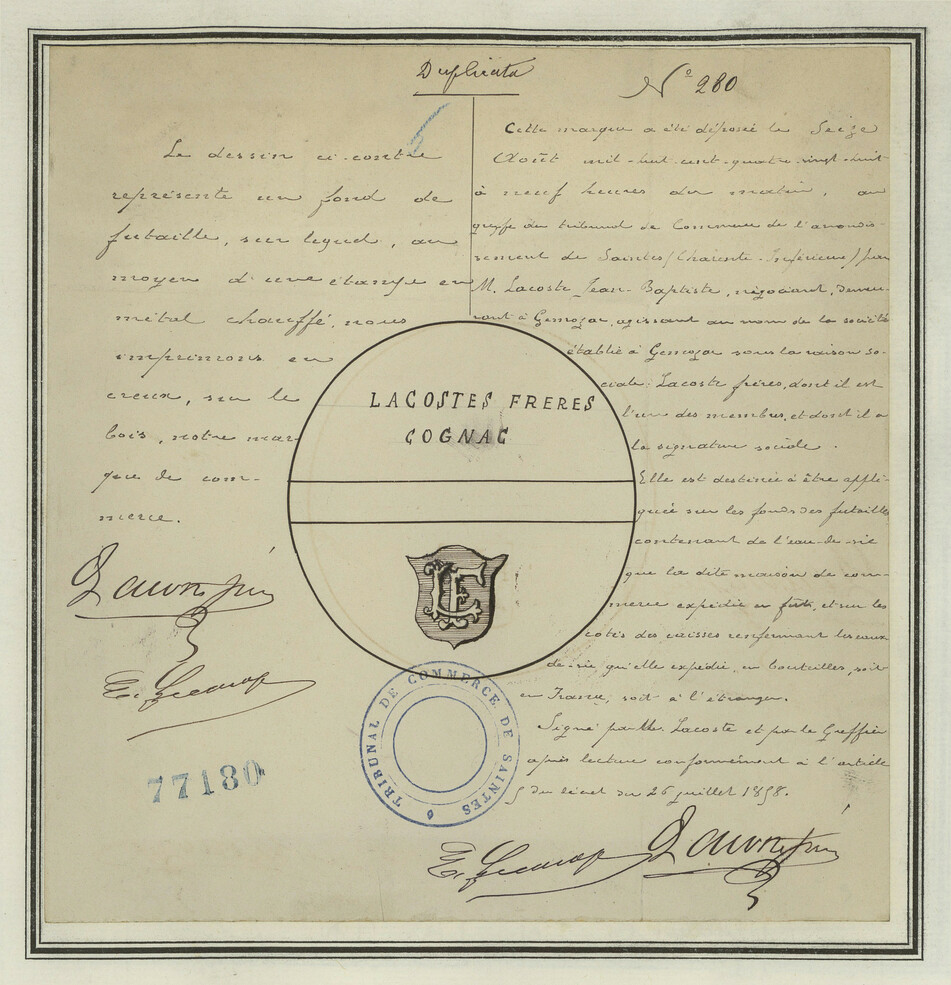 Duplicata
Nº 280
Le dessin ci-contre
représente un fond de
futaille, sur lequel, au
moyen d'une étampe en
métal chauffé, nous
imprimons en
creux, sur le
bois, notre mar-
que de com-
merce.
Cette marque a été déposée le Seize
Août mil-huit-cent-quatre-vingt-huit
à neuf heures du matin, au
greffe du tribunal de Commerce de l'arrondis-
sement de Saintes (Charente-Inférieure) par
M. Lacoste Jean-Baptiste, négociant, demeu-
rant à Gemozac, agissant au nom de la société
établie à Gemozac sous la raison so-
ciale: Lacoste frères, dont il est
l'un des membres, et dont il a
la signature sociale.
Elle est destinée à être appli-
quée sur les fonds des futailles
contenant de l'eau-de-vie
que la dite maison de com-
merce expédie en futs, et sur les
côtés des caisses renfermant les eaux-
de-vie, qu'elle expédie, en bouteilles, soit
en France, soit à l'étranger.
Signé par Mr. Lacoste et par le Greffier
après lecture conformément à l'article
5 du décret du 26 juillet 1858.
LACOSTES FRERES
COGNAC
LF
TRIBUNAL DE COMMERCE DE SAINTES
77180